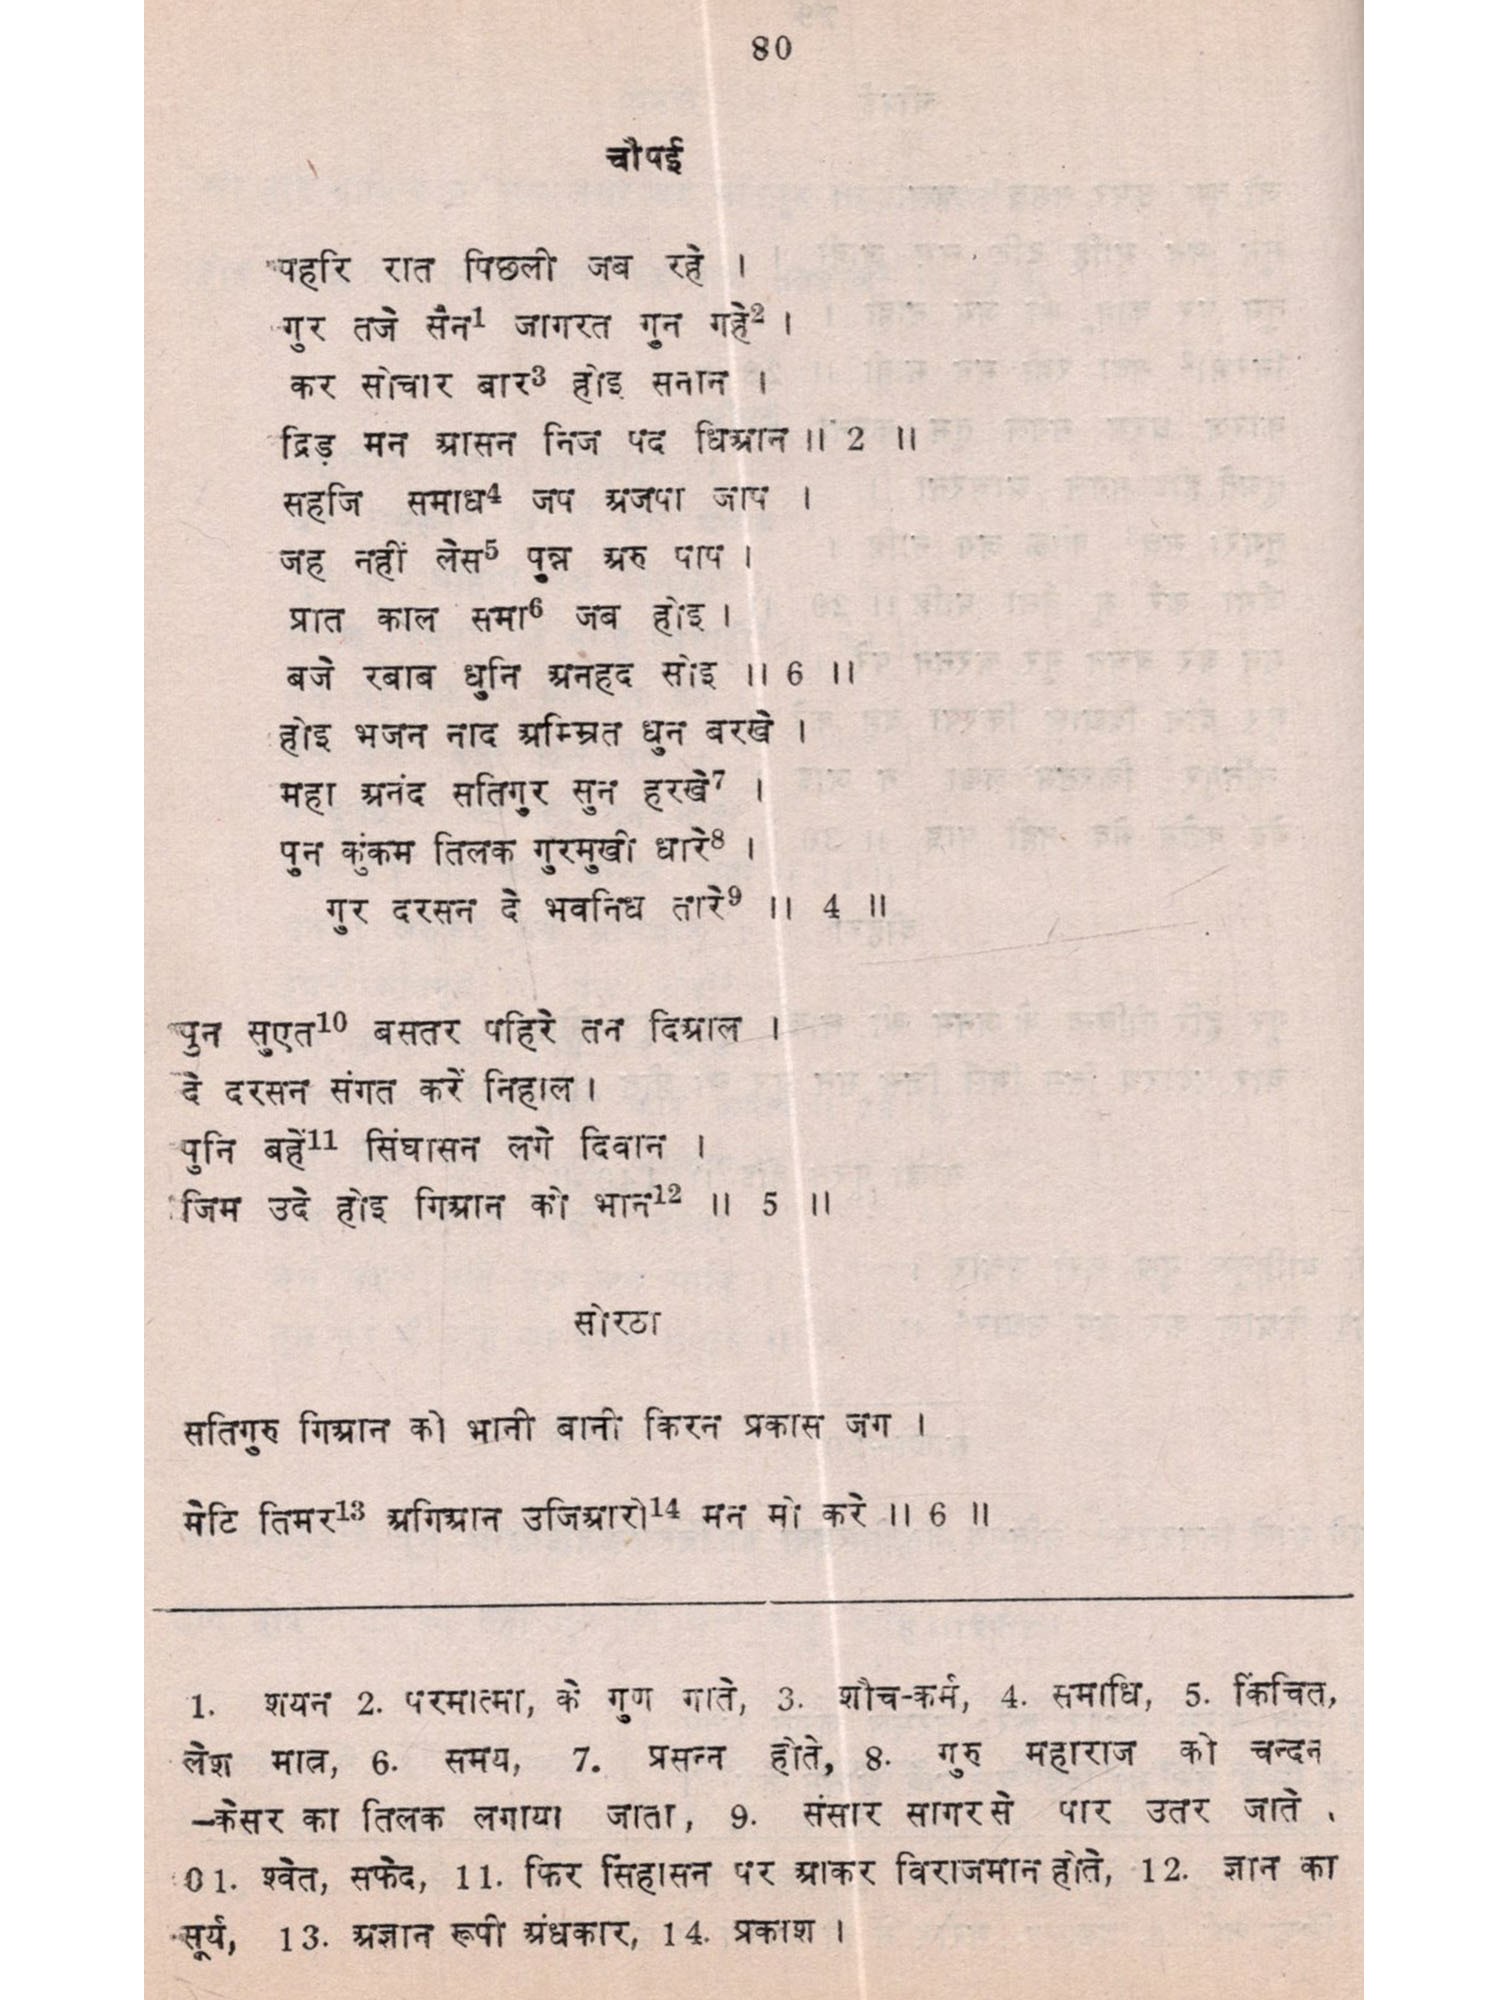 80
चौपई
पहरि रात पिछली जब रहे ।
गुर तजे सैन1 जागरत गुन गहे2 ।
कर सोचार बार3 होइ सनान ।
द्रिड़ मन आसन निज पद धिआन ।। 2 ।।
सहजि समाध4 जप अजपा जाप ।
जह नहीं लेस5 पुन्न अरु पाप ।
प्रात काल समा6 जब होइ ।
बजे रबाब धुनि अनहद सोइ ।। 6 ।।
होइ भजन नाद अम्म्रित धुन बरखे ।
महा अनंद सतिगुर सुन हरखे7 ।
पुन कुंकम तिलक गुरमुखी धारे8 ।
गुर दरसन दे भवनिध तारे9 ।। 4 ।।
पुन सुएत10 बसतर पहिरे तन दिआल ।
दे दरसन संगत करें निहाल ।
पुनि बहें11 सिंघासन लगे दिवान ।
जिम उदे होइ गिआन को भान12 ।। 5 ।।
सोरठा
सतिगुरु गिआन को भानी बानी किरन प्रकास जग ।
मेटि तिमर13 अगिआन उजिआरो14 मन मो करे ।। 6 ।।
1. शयन 2. परमात्मा, के गुण गाते, 3. शौच-कर्म, 4. समाधि, 5. किंचित,
लेश मात्र, 6. समय, 7. प्रसन्न होते, 8. गुरु महाराज को चन्दन
–केसर का तिलक लगाया जाता, 9. संसार सागर से पार उतर जाते .
01. श्वेत, सफेद, 11. फिर सिंहासन पर आकर विराजमान होते, 12. ज्ञान का
सूर्य, 13. अज्ञान रूपी अंधकार, 14. प्रकाश ।